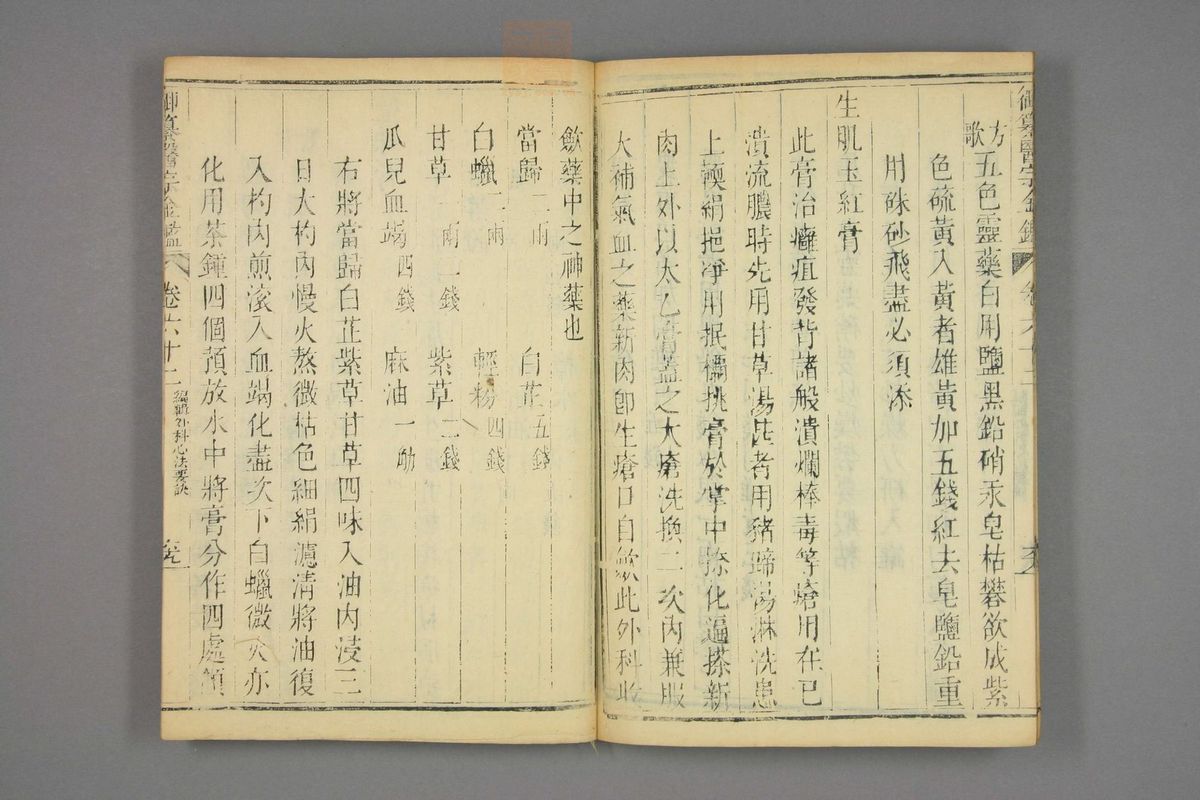 御纂醫宗金鑑 卷六十二
方歌
五色靈藥白用鹽黑鉛硝汞皂枯礬欲成紫
色硫黃入黃者雄黃加五錢紅去皂鹽鉛重
用硃砂飛盡必須添
生肌玉紅膏
此膏治癰疽發背諸般潰爛棒毒等瘡用在已
潰流膿時先用甘草湯甚者用豬蹄湯淋洗患
上輭絹挹淨用抿𣔻挑膏於掌中捺化遍搽新
肉上外以太乙膏蓋之大瘡洗換二次內兼服
大補氣血之藥新肉即生瘡口自斂此外科收
斂藥中之神藥也
當歸二兩 白芷五錢
白蠟二兩 輕粉四錢
甘草一兩二錢 紫草二錢
瓜兒血竭四錢 麻油一觔
右將當歸白芷紫草甘草四味入油內浸三
日大杓內慢火熬微枯色細絹濾清將油復
入杓內煎滾入血竭化盡次下白蠟微火亦
化用茶鍾四個預放水中將膏分作四處傾
御纂醫宗金鑑 卷六十二 編輯外科心法要訣